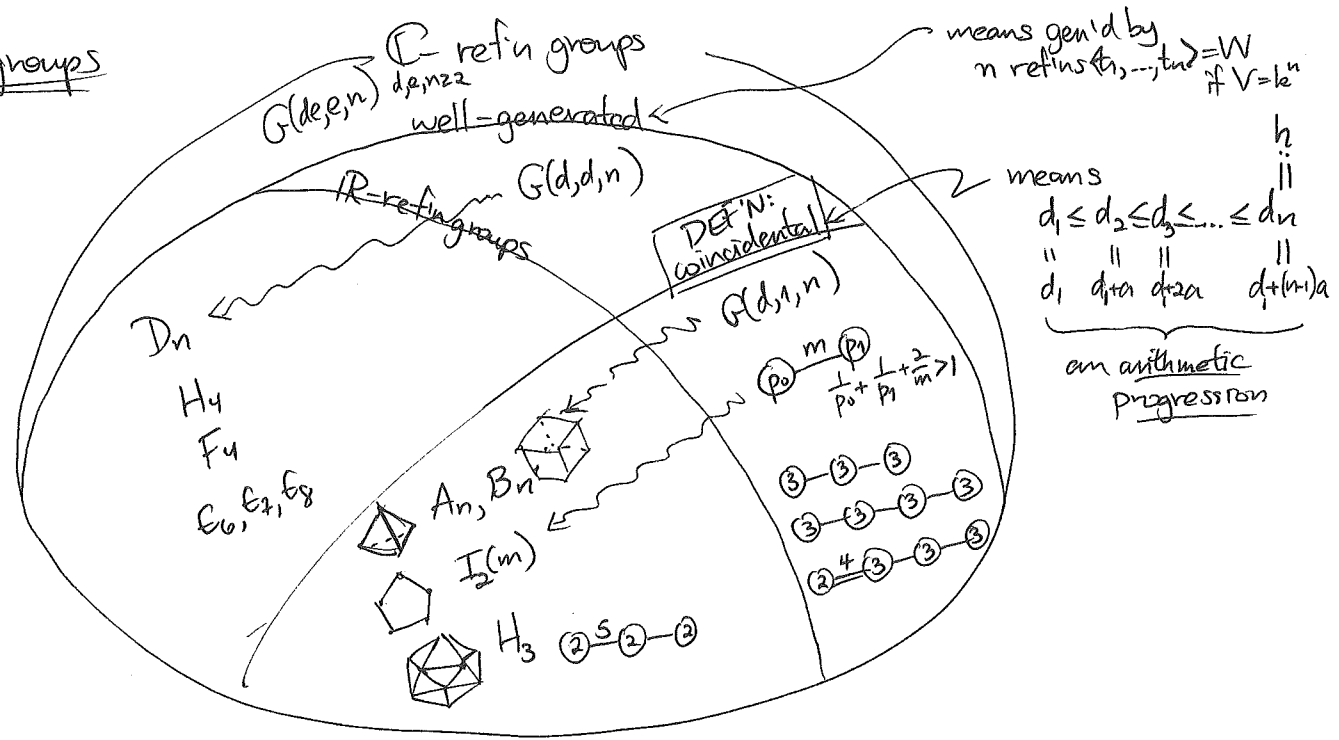 groups
ℂ- refl'n groups
G(de,e,n) d,e,n≥2
well-generated
means gen'd by
n refl'ns ⟨t₁,...,tₙ⟩=W
if V=kⁿ
ℝ-refl'n groups
G(d,d,n)
DEF'N:
coincidental
means
h
||
d₁ ≤ d₂ ≤ d₃ ≤ .... ≤ dₙ
|| || || ||
d₁ d₁+a d₁+2a d₁+(n-1)a
an arithmetic
progression
G(d,1,n)
p₀ m p₁
1/p₀ + 1/p₁ + 2/m > 1
Dₙ
H₄
F₄
E₆, E₇, E₈
Aₙ, Bₙ
I₂(m)
H₃ 2 5 2 2
3 3 3
3 3 3 3
2 4 3 3 3